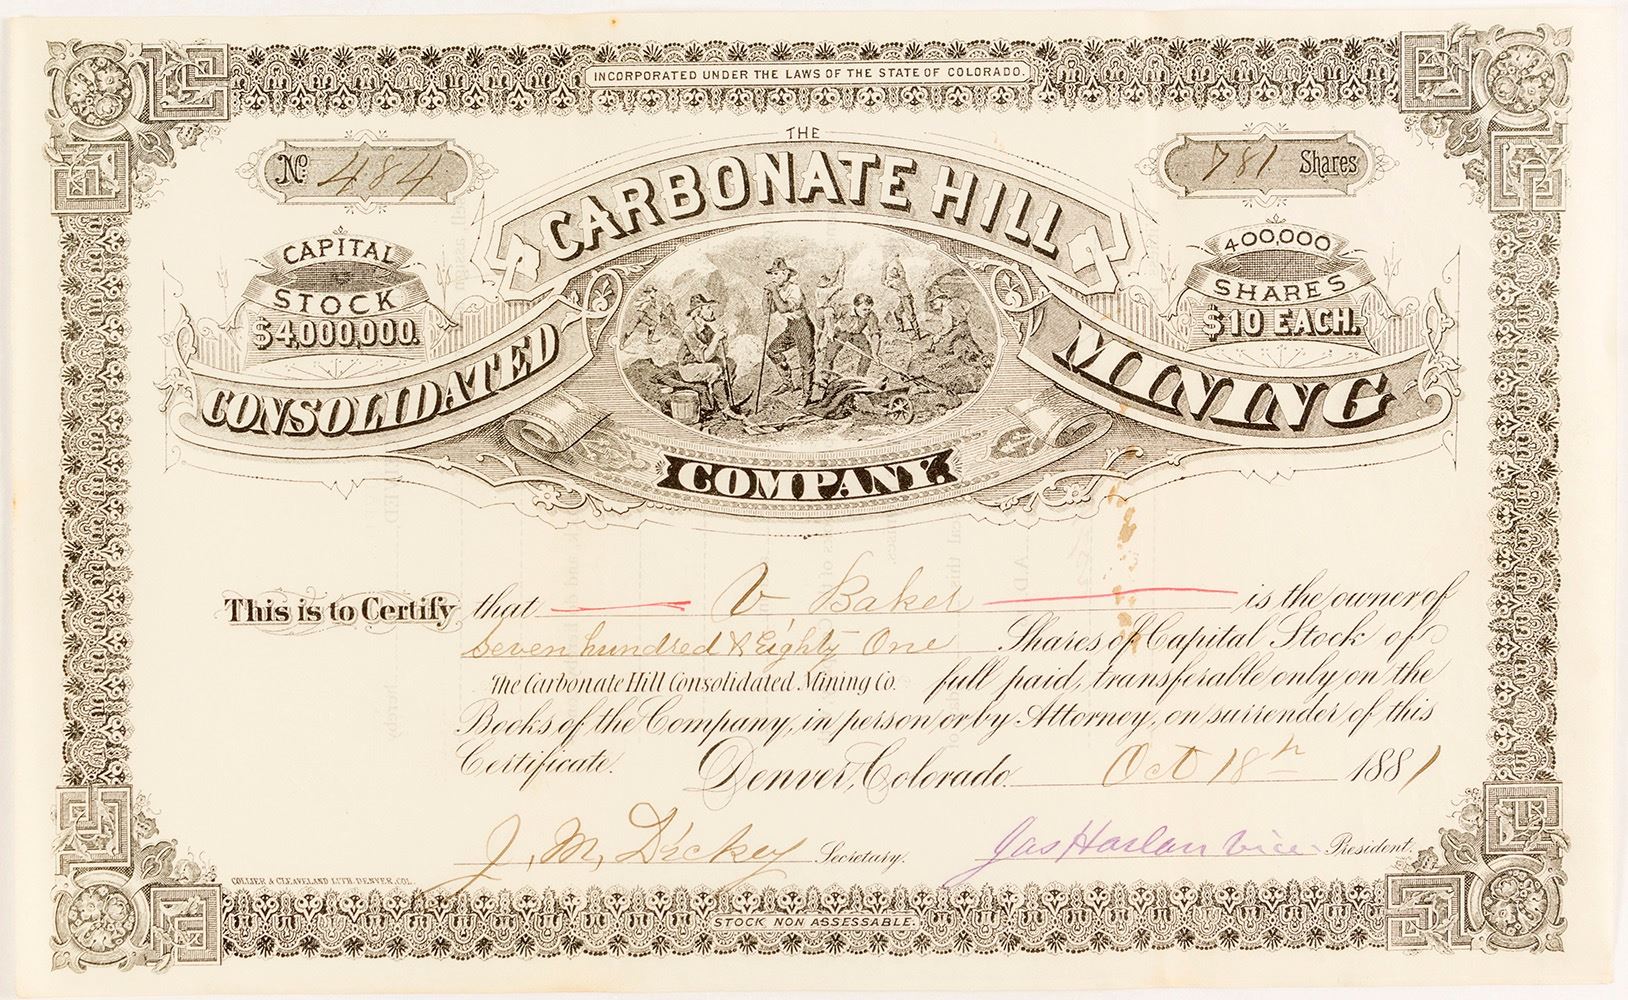 INCORPORATED UNDER THE LAWS OF THE STATE OF COLORADO.
No. 484
THE
781 Shares
CARBONATE HILL
CAPITAL
STOCK
$4,000,000.
400,000
SHARES
$10 EACH.
CONSOLIDATED
MINING
COMPANY.
This is to Certify that V Baker is the owner of
Seven hundred & Eighty One Shares of Capital Stock of
The Carbonate Hill Consolidated Mining Co. full paid, transferable only on the
Books of the Company, in person or by Attorney, on surrender of this
Certificate. Denver, Colorado. Oct 18th 1881
J. M. Dickey Secretary. Jas Harlan Vice President.
COLLIER & CLEAVELAND LITH. DENVER, COL.
STOCK NON ASSESSABLE.